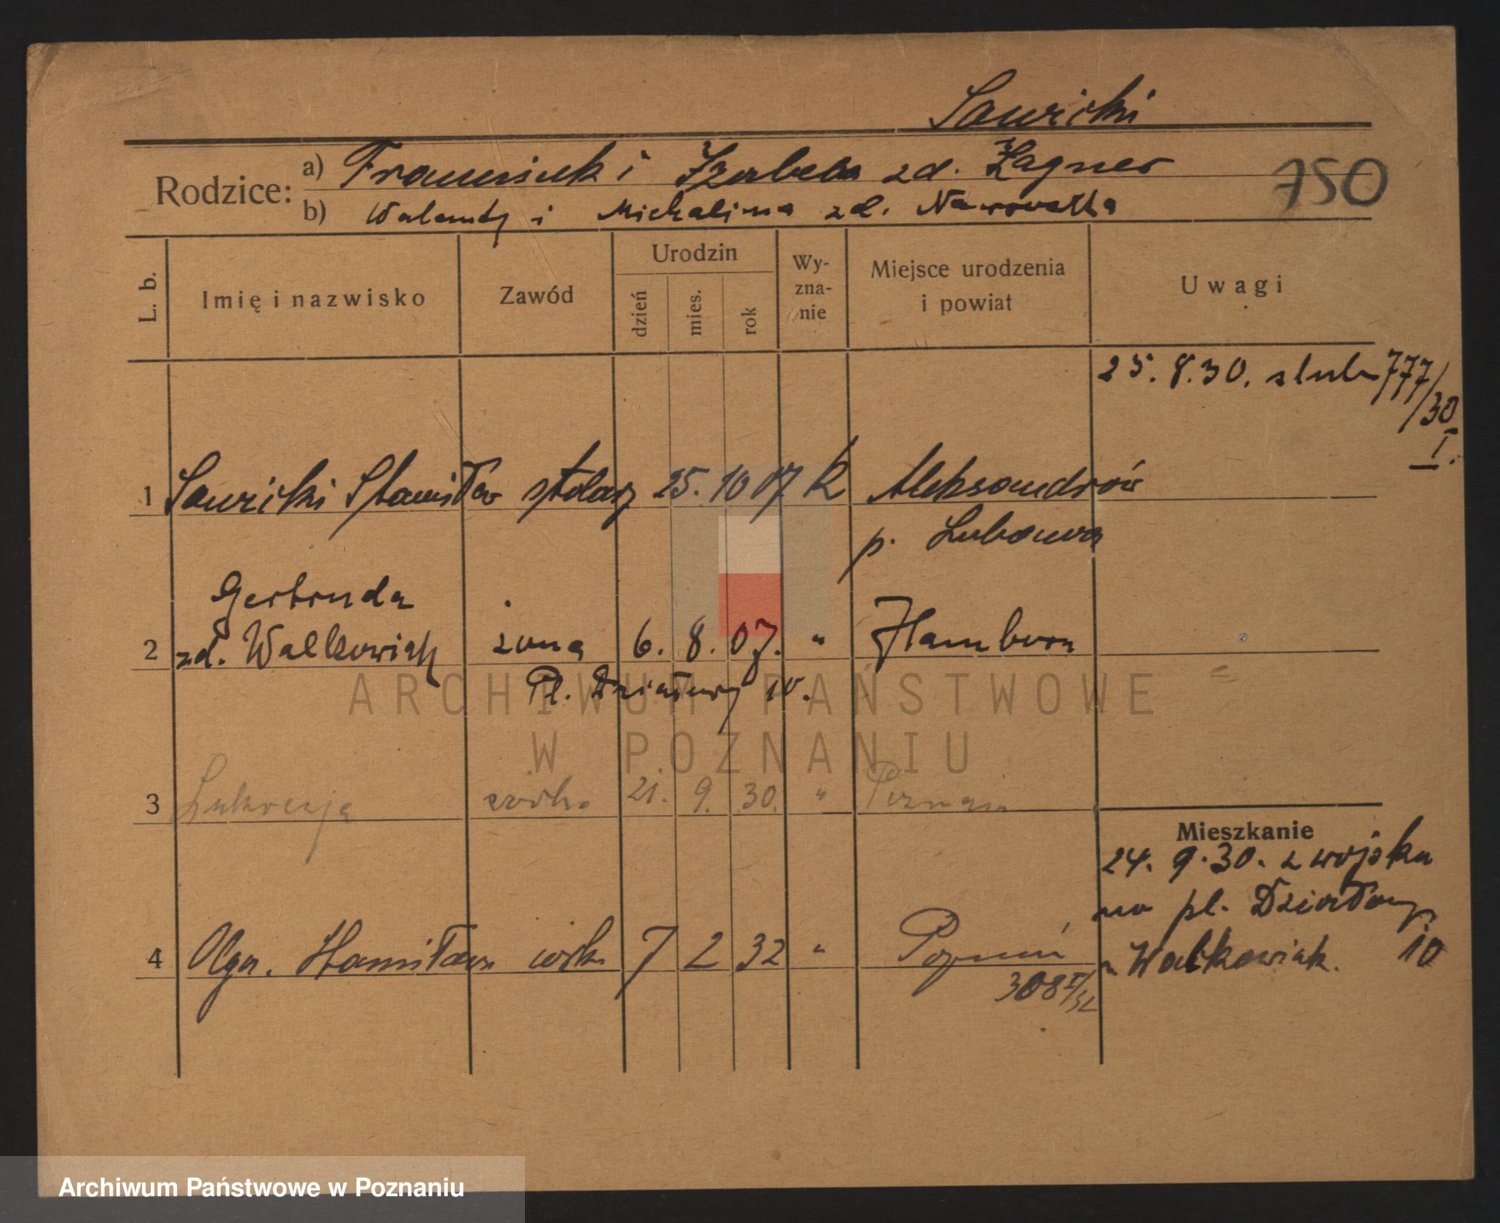 Sawicki
Rodzice: a) Franciszek i Izabela zd. Zagner
750
b) Walenty i Michalina zd. Nawrocka
L. b.
Imię i nazwisko
Zawód
Urodzin
dzień
mies.
rok
Wy-
zna-
nie
Miejsce urodzenia
i powiat
Uwagi
25. 8. 30. slub 777/30
I.
1 Sawicki Stanisław stolarz 25. 10 07 k Aleksandrów
p. Lubawa
Gertruda
2 zd. Walkowiak żona 6. 8. 07. " Hamborn
Pl. Działowy 10.
3 Lukrecja córka 21. 9. 30. " Poznań
Mieszkanie
24. 9. 30. z wojska
na pl. Działowy 10
u Walkowiak.
4 Olga. Stanisława córka 7 2 32 " Poznań
308 I/32
ARCHIWUM PAŃSTWOWE
W POZNANIU
Archiwum Państwowe w Poznaniu